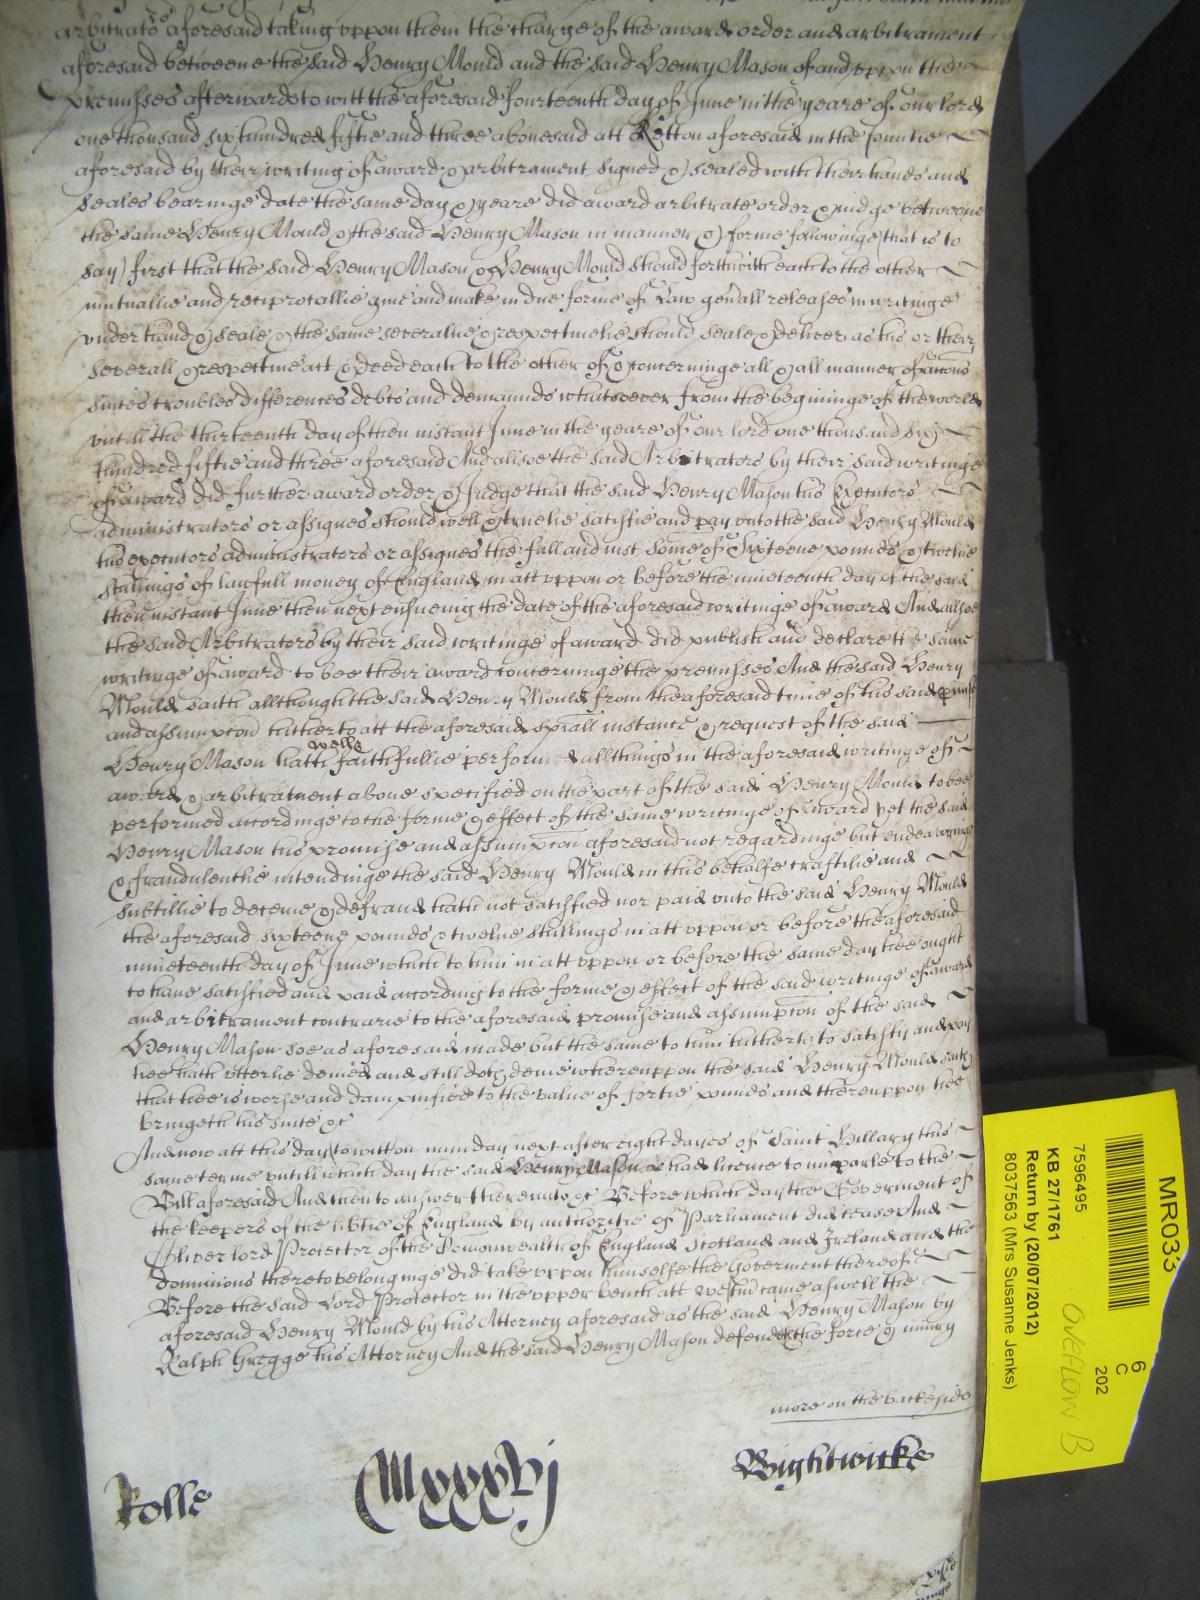 arbitrators aforesaid taking uppon them the charge of the award order and arbitrament
aforesaid betweene the said Henry Mould and the said Henry Mason of and uppon the
premisses afterwards to witt the aforesaid fourteenth day of June in the yeare of our lord
one thousand six hundred fiftie and three abovesaid att Ketton aforesaid in the Countie
aforesaid by their writing of award & arbitrament signed & sealed with their hands and
seales bearinge date the same day & yeare did award arbitrate order & judge betweene
the same Henry Mould & the said Henry Mason in manner & forme followinge (that is to
say) first that the said Henry Mason & Henry Mould should forthwith each to the other
mutualie and reciprocallie give and make in due forme of Law genall releases in writinge
under hand & seale & the same severalie & respectivelie should seale & deliver as his or their
severall & respective act & deed each to the other of & concerninge all & all manner of accons
suites troubles differences debts and demaunds whatsoever from the begininge of the world
untill the thirteenth day of then instant June in the yeare of our lord one thousand six
hundred fiftie and three aforesaid And allsoe the said Arbitrators by their said writinge
of award did further award order & Judge that the said Henry Mason his Executors
administrators or assignes should well & truelie satisfie and pay unto the said Henry Mould
his executors administrators or assignes the full and just some of Sixteene pounds & twelve
shillings of lawfull money of England in att uppon or before the nineteenth day of the said
then instant June then next ensueing the date of the aforesaid writinge of award And allsoe
the said Arbitrators by their said writinge of award did publish and declare the same
writinge of award to bee their award concerninge the premisses And the said Henry
Mould saith allthough the said Henry Mould from the aforesaid time of his said promise
and assumpcon hitherto att the aforesaid spiall instance & request of the said
Henry Mason hath well & faithfullie performed all things in the aforesaid writinge of
award & arbitrament above specified on the part of the said Henry Mould to bee
performed accordinge to the forme & effect of the same writinge of award yet the said
Henry Mason his promise and assumpcon aforesaid not regardinge but endeavoring
& fraudulentlie intendinge the said Henry Mould in this behalfe craftilie and
subtillie to deceive & defraud hath not satisfied nor paid unto the said Henry Mould
the aforesaid sixteene pounds & twelve shillings in att uppon or before the aforesaid
nineteenth day of June which to him in att uppon or before the same day hee ought
to have satisfied and paid according to the forme & effect of the said writinge of award
and arbitrament contrarie to the aforesaid promise and assumpcon of the said
Henry Mason soe as aforesaid made but the same to him hitherto to satisfy and pay
hee hath utterlie denied and still doth denie whereuppon the said Henry Mould saith
that hee is worse and dampnified to the value of fortie pounds and thereuppon hee
bringeth his suite &c
And now att this day (to witt) on munday next after eight dayes of Saint Hillary this
same terme untill which day the said Henry Mason had licence to imparle to the
Bill aforesaid And then to answer thereunto &c Before which day the Goverment of
the keepers of the libtie of England by authoritie of Parliament did cease And
Oliver lord Protector of the Comonwealth of England Scotland and Ireland and the
dominions thereto belonginge did take uppon himselfe the Goverment thereof
Before the said Lord Protector in the upper bench att Westm came aswell the
aforesaid Henry Mould by his Attorney aforesaid as the said Henry Mason by
Ralph Gregge his Attorney And the said Henry Mason defendeth the force & injury
more on the backeside
Rolle
Mxxxvj
Bightwicke
MR033
6
C
202
7596495
KB 27/1761
Return by (20/07/2012)
8037563 (Mrs Susanne Jenks)
OVERFLOW B